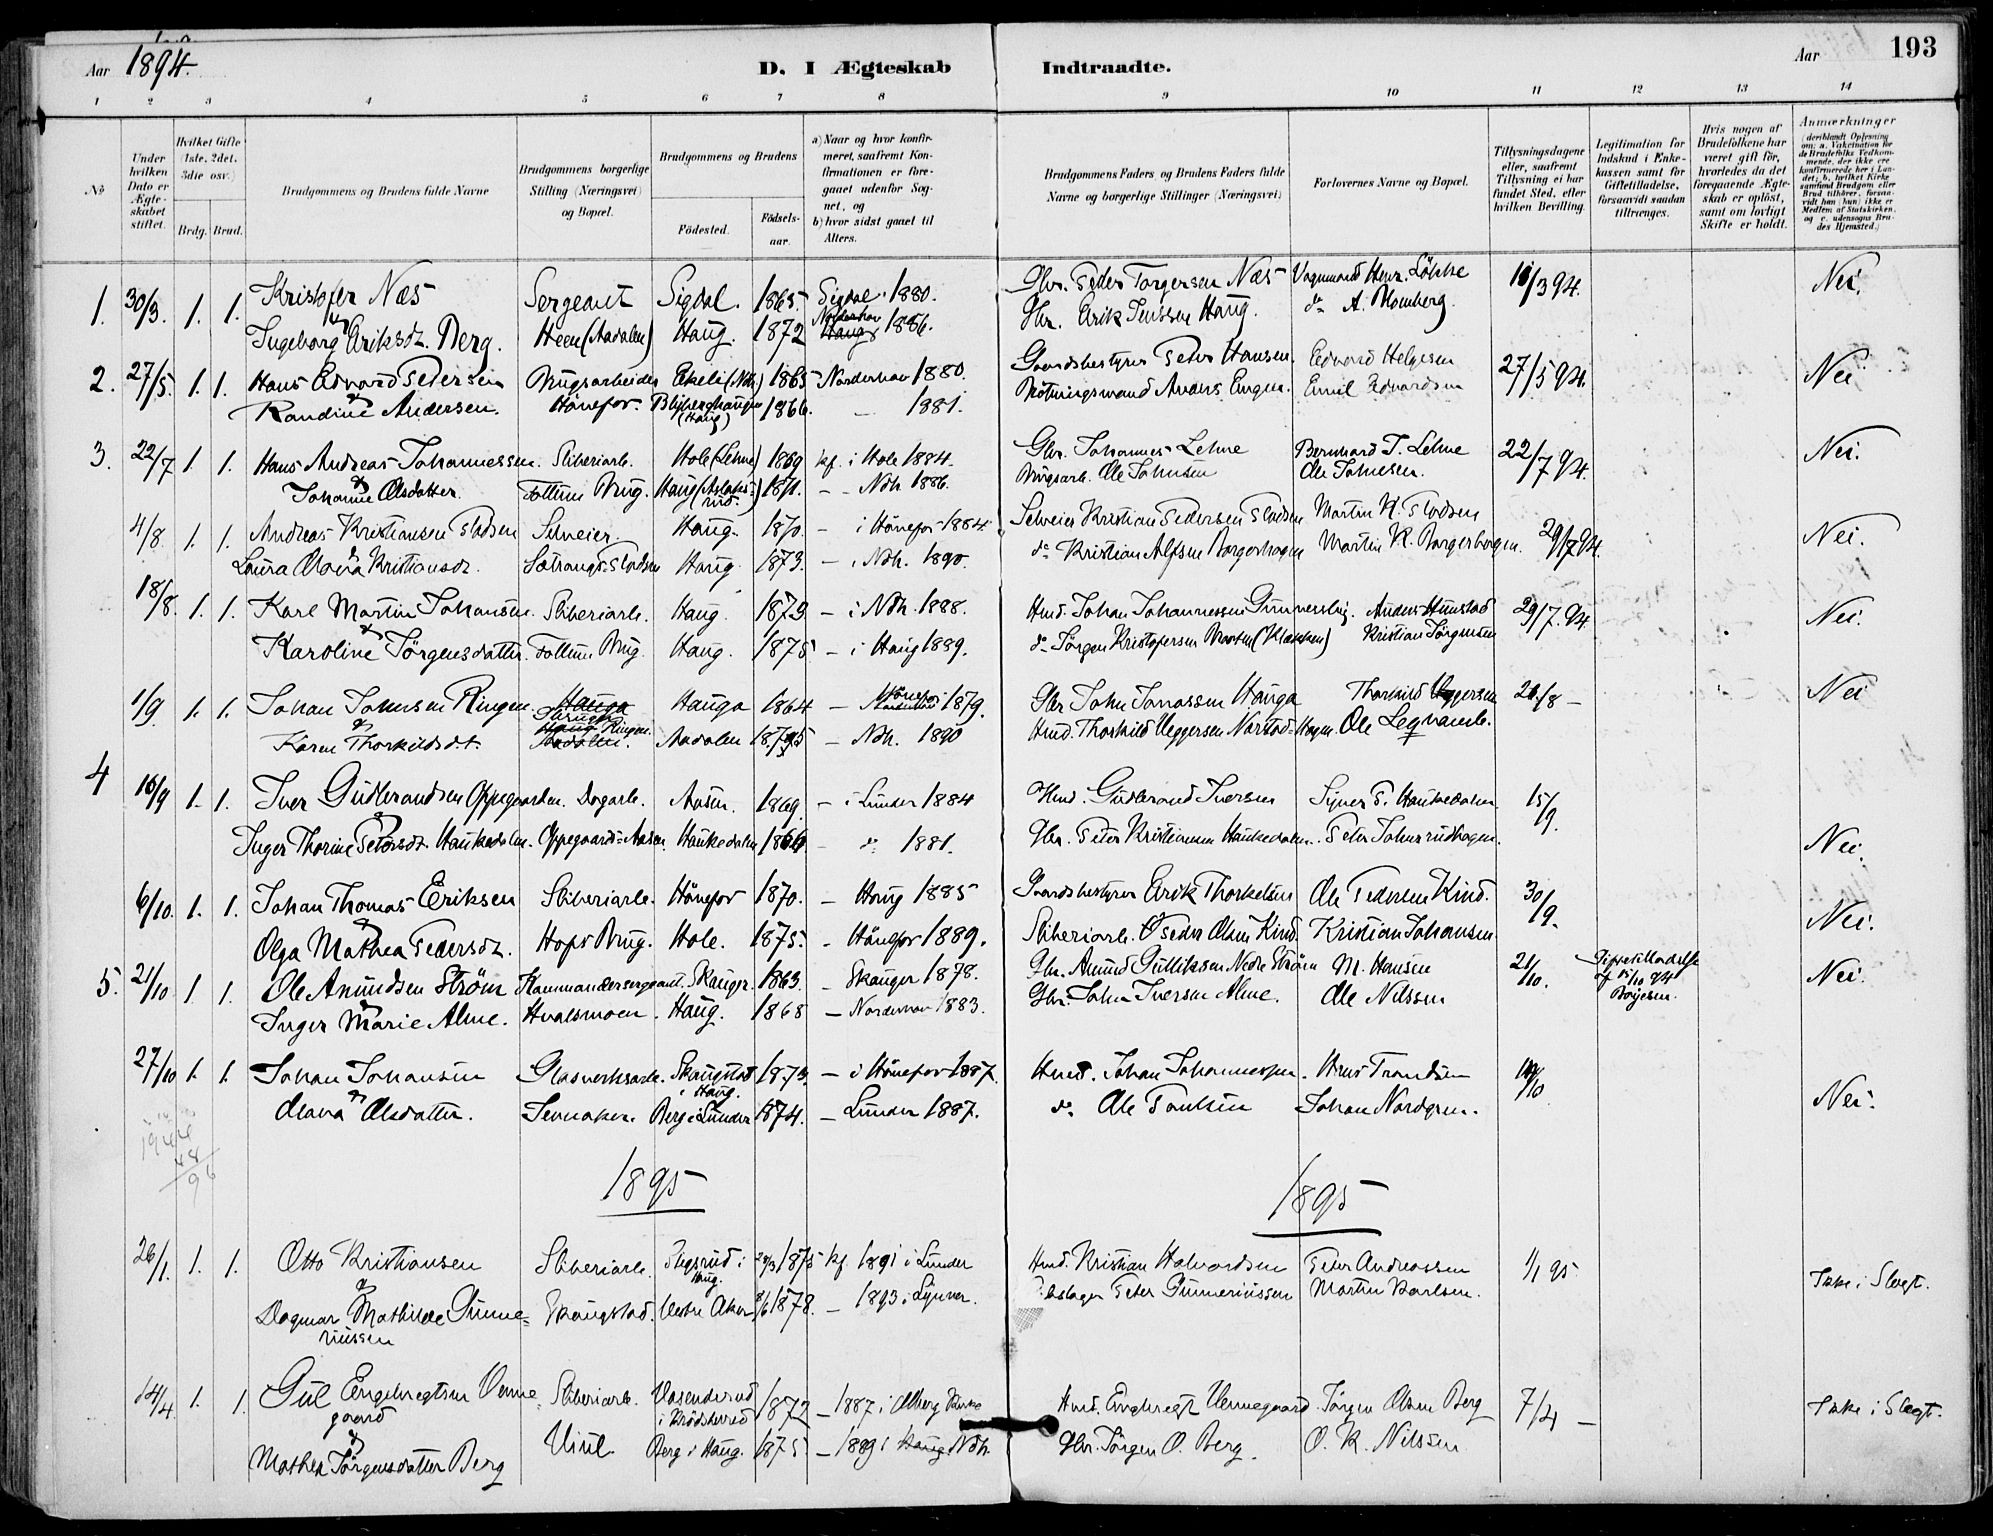 Aar 1894.
D. I Ægteskab Indtraadte.
Aar 193
1 2 3 4 5 6 7 8 9 10 11 12 13 14
No
Under hvilken Dato er Ægteskabet stiftet.
Hvilket Gifte (1ste, 2det, 3die osv.)
Brdg. Brud.
Brudgommens og Brudens fulde Navne
Brudgommens borgerlige Stilling (Næringsvei) og Bopæl.
Brudgommens og Brudens
Fødested.
Fødselsaar.
a) Naar og hvor konfirmeret, saafremt Konfirmationen er foregaaet udenfor Sognet, og
b) hvor sidst gaaet til Alters.
Brudgommens Faders og Brudens Faders fulde Navne og borgerlige Stillinger (Næringsvei)
Forlovernes Navne og Bopæl.
Tillysningsdagene eller, saafremt Tillysning ei har fundet Sted, efter hvilken Bevilling.
Legitimation for Indskud i Enkekassen samt for Giftetilladelse, forsaavidt saadan tiltrænges.
Hvis nogen af Brudefolkene har været gift før, hvorledes da det foregaaende Ægteskab er opløst, samt om lovligt Skifte er holdt.
Anmærkninger (deriblandt Oplysning om: a. Vakcination for de Brudefolks Vedkommende, der ikke ere konfirmerede her i Landet; b. hvilket Kirkesamfund Brudgom eller Brud tilhører, forsaavidt han (hun) ikke er Medlem af Statskirken, og c. udensogns Brudes Hjemsted.)
1. 30/3. 1. 1. Kristofer Næs Sergeant Sigdal. 1865. Sigdal 1880. Gbr. Peder Torgersen Næs Vognmand Henr. Løkke 11/3 94. Nei.
og Ingeborg Eriksdt. Berg. Heen (Aadalen) Haug. 1872 Norderhov Haug 1886. Gbr. Erik Jenssen Haug. do A. Homberg.
2. 27/5. 1. 1. Hans Edvard Pedersen Brugsarbeider Ekeli (Ndh.) 1865 Norderhov 1880. Gaardsbestyrer Peder Hansen. Edvard Helgesen 27/5 94. Nei
& Randine Andersen. Hønefos. (Haug) 1866. — 1881. Anders Engen. Emil Edvardsen
3. 22/7 1. 1. Hans Andreas Johannessen. Sliberiarb. Hole (Lehne) 1869 kf. i Hole 1884. Gbr. Johannes Lehne Bernhard J. Lehne 22/7 94. Nei.
& Johanne Olsdatter. Follum Brug. Haug (Aslaksrud.) 1871. – – Ndh 1886. Brugsarb. Ole Johnsen Ole Johnsen.
4/8 1. 1. Andreas Kristiansen Pladsen Selveier. Haug. 1870. – i Hønefos 1884. Selveier Kristian Pedersen Pladsen Martin K. Pladsen 29/7 94. Nei.
& Laura Olava Kristiansdt. Sætrangs-Pladsen Haug 1873. – i Ndh. 1890. do Kristian Alfsen Borgerhagen Martin K. Borgerhagen.
18/8. 1. 1. Karl Martin Johansen. Sliberiarb. Haug. 1872 – i Ndh. 1888. Hmd. Johan Johannessen Anders Hunstad 29/7. 94. Nei.
& Karoline Jørgensdatter. Follum Brug. Haug. 1875 – i Haug 1889. do Jørgen Kristofersen (Klækken) Kristian Jørgensen
1/9 1. 1. Johan Johnsen Ringen Hauga Hauga 1864 – Hønefos 1879. Gbr John Jonassen Hauga Thorkild Uggersen 26/8 – Nei
& Karen Thorkildsdt. Ringen. Aadalen. Aadalen 1875 – Ndh. 1890 Hmd. Thorkild Uggersen Ole Leqvamb.
4 16/9 1. 1. Iver Gudbrandsen Oppegaarden. Dagarb. Aasen. 1869. – i Lunder 1884 Hmd. Gudbrand Iversen Syver P. Haukedalen 15/9.
& Inger Thorine Pedersdt. Haukedalen. Oppegaards-Aasen Haukedalen 1866. – do 1881. Gbr. Peder Kristiansen Haukedalen. Peder Johnsrudhagen. Nei.
6/10. 1. 1. Johan Thomas Eriksen Sliberiarb. Hønefos 1870. – Haug 1885 Gaardsbestyrer Erik Thorkelsen Ole Pedersen Kind. 30/9. Nei.
& Olga Mathea Pedersdt. Hofs Brug. Hole. 1875. – Hønefos 1889. Sliberiarb. Peder Olsen Kind. Kristian Johansen.
5. 21/10 1. 1. Ole Amundsen Strøm Kommandersergeant. Skauger. 1863. – Skauger 1878. Gbr. Amund Gulliksen Nedre Strøm M. Hansen 21/10. Giftetilladelse af 15/10 94 Boijesen. Nei.
& Inger Marie Alme. Hvalsmoen. Haug. 1868 – Norderhov 1883. Gbr. John Iversen Alme. Ole Nilssen
27/10 1. 1. Johan Johansen Glasverksarb. Skaugstad i Haug. 1873. – i Hønefos 1887. Hmd. Johan Johannessen. Hans Trondsen 14/10 Nei.
& Olava Olsdatter. Sevnaker. Berg i Lunder 1874. – Lunder 1887. do Ole Paulsen Johan Nordgren.
1944
48
96
1895 1895
26/1. 1. 1. Otto Kristiansen Sliberiarb. i Haug. 29/3 1875 kf. 1891 i Lunder Hmd. Kristian Halvordsen Peter Andreassen 1/1 95 Ikke i Slegt.
& Dagmar Mathilde Gunneriussen Skaugstad. Vestre Aker 8/6 1878. – 1893 i Lunner. Peter Gunneriussen Martin Karlsen.
14/4 1. 1. Gul Engebregtsen Vennegaard Sliberiarb. i Modsherred 1872 – 1887 i Olberg Kirke Hmd. Engebregt Vennegaard Jørgen Olsen Berg 7/4 – Ikke i Slegt.
& Mathea Jørgensdatter Berg Viul Berg i Haug. 1875 – 1889 i Haug Ndh. Gbr. Jørgen O. Berg. O. K. Nilssen